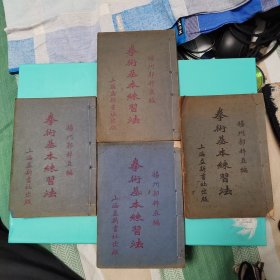 揚州郭粹亞編
拳術基本練習法
上海益新書社出版
揚州郭粹亞編
拳術基本練習法
上海益新書社出版
揚州郭粹亞編
拳術基本練習法
上海益新書社出版
揚州郭粹亞編
拳術基本練習法
上海益新書社出版